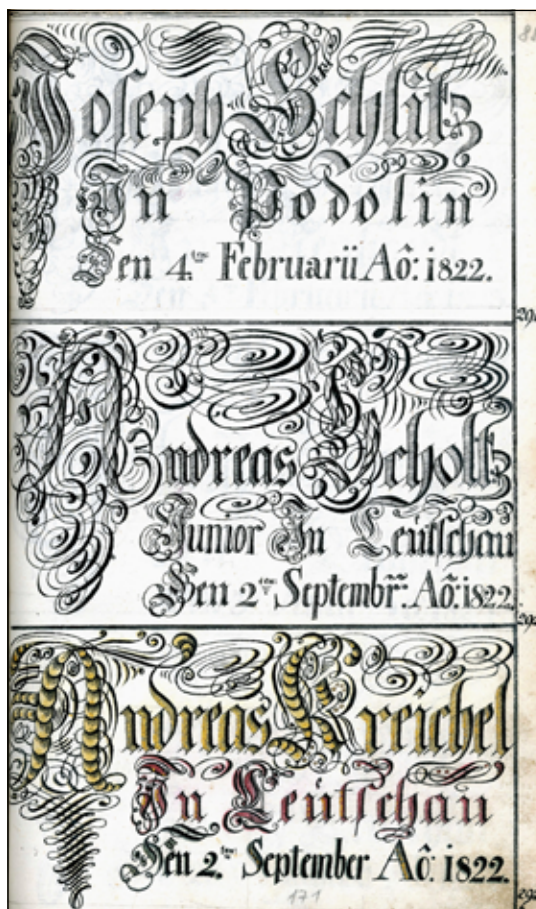 88
Joseph Schlitz
In Podolin
Den 4.ten Februarii Aô: 1822.
290
Andreas Scholtz
Junior In Leütschau
Den 2.ten Septembr̃: Aô: 1822.
Andreas Kreichel
In Leütschau
Den 2.ten September Aô: 1822.
171
292